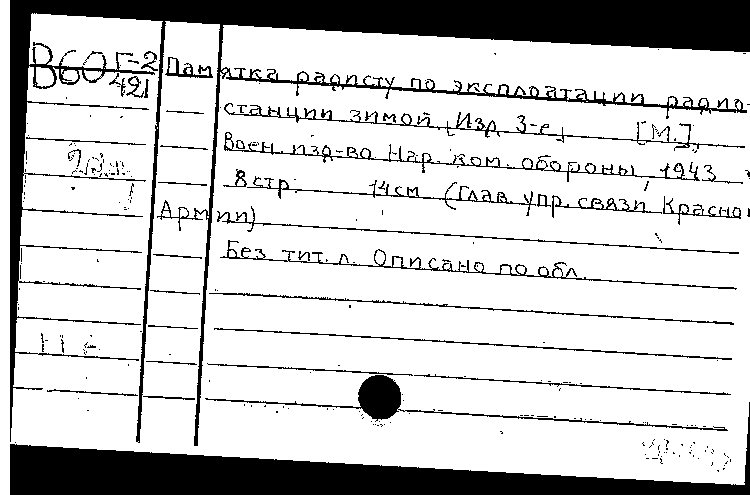 В60 Г-2
421
Памятка радисту по эксплоатации радио-
станции зимой. Изд. 3-е. [М.],
Воен. изд-во Нар. ком. обороны, 1943
8 стр. 14 см (Глав. упр. связи Красной
Армии)
Без тит. л. Описано по обл.